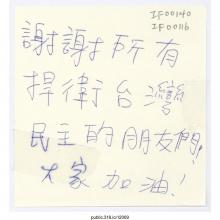 IF00140
IF00116
謝謝所有
捍衛台灣
民主的朋友們!
大家加油!
public.318.io/2009